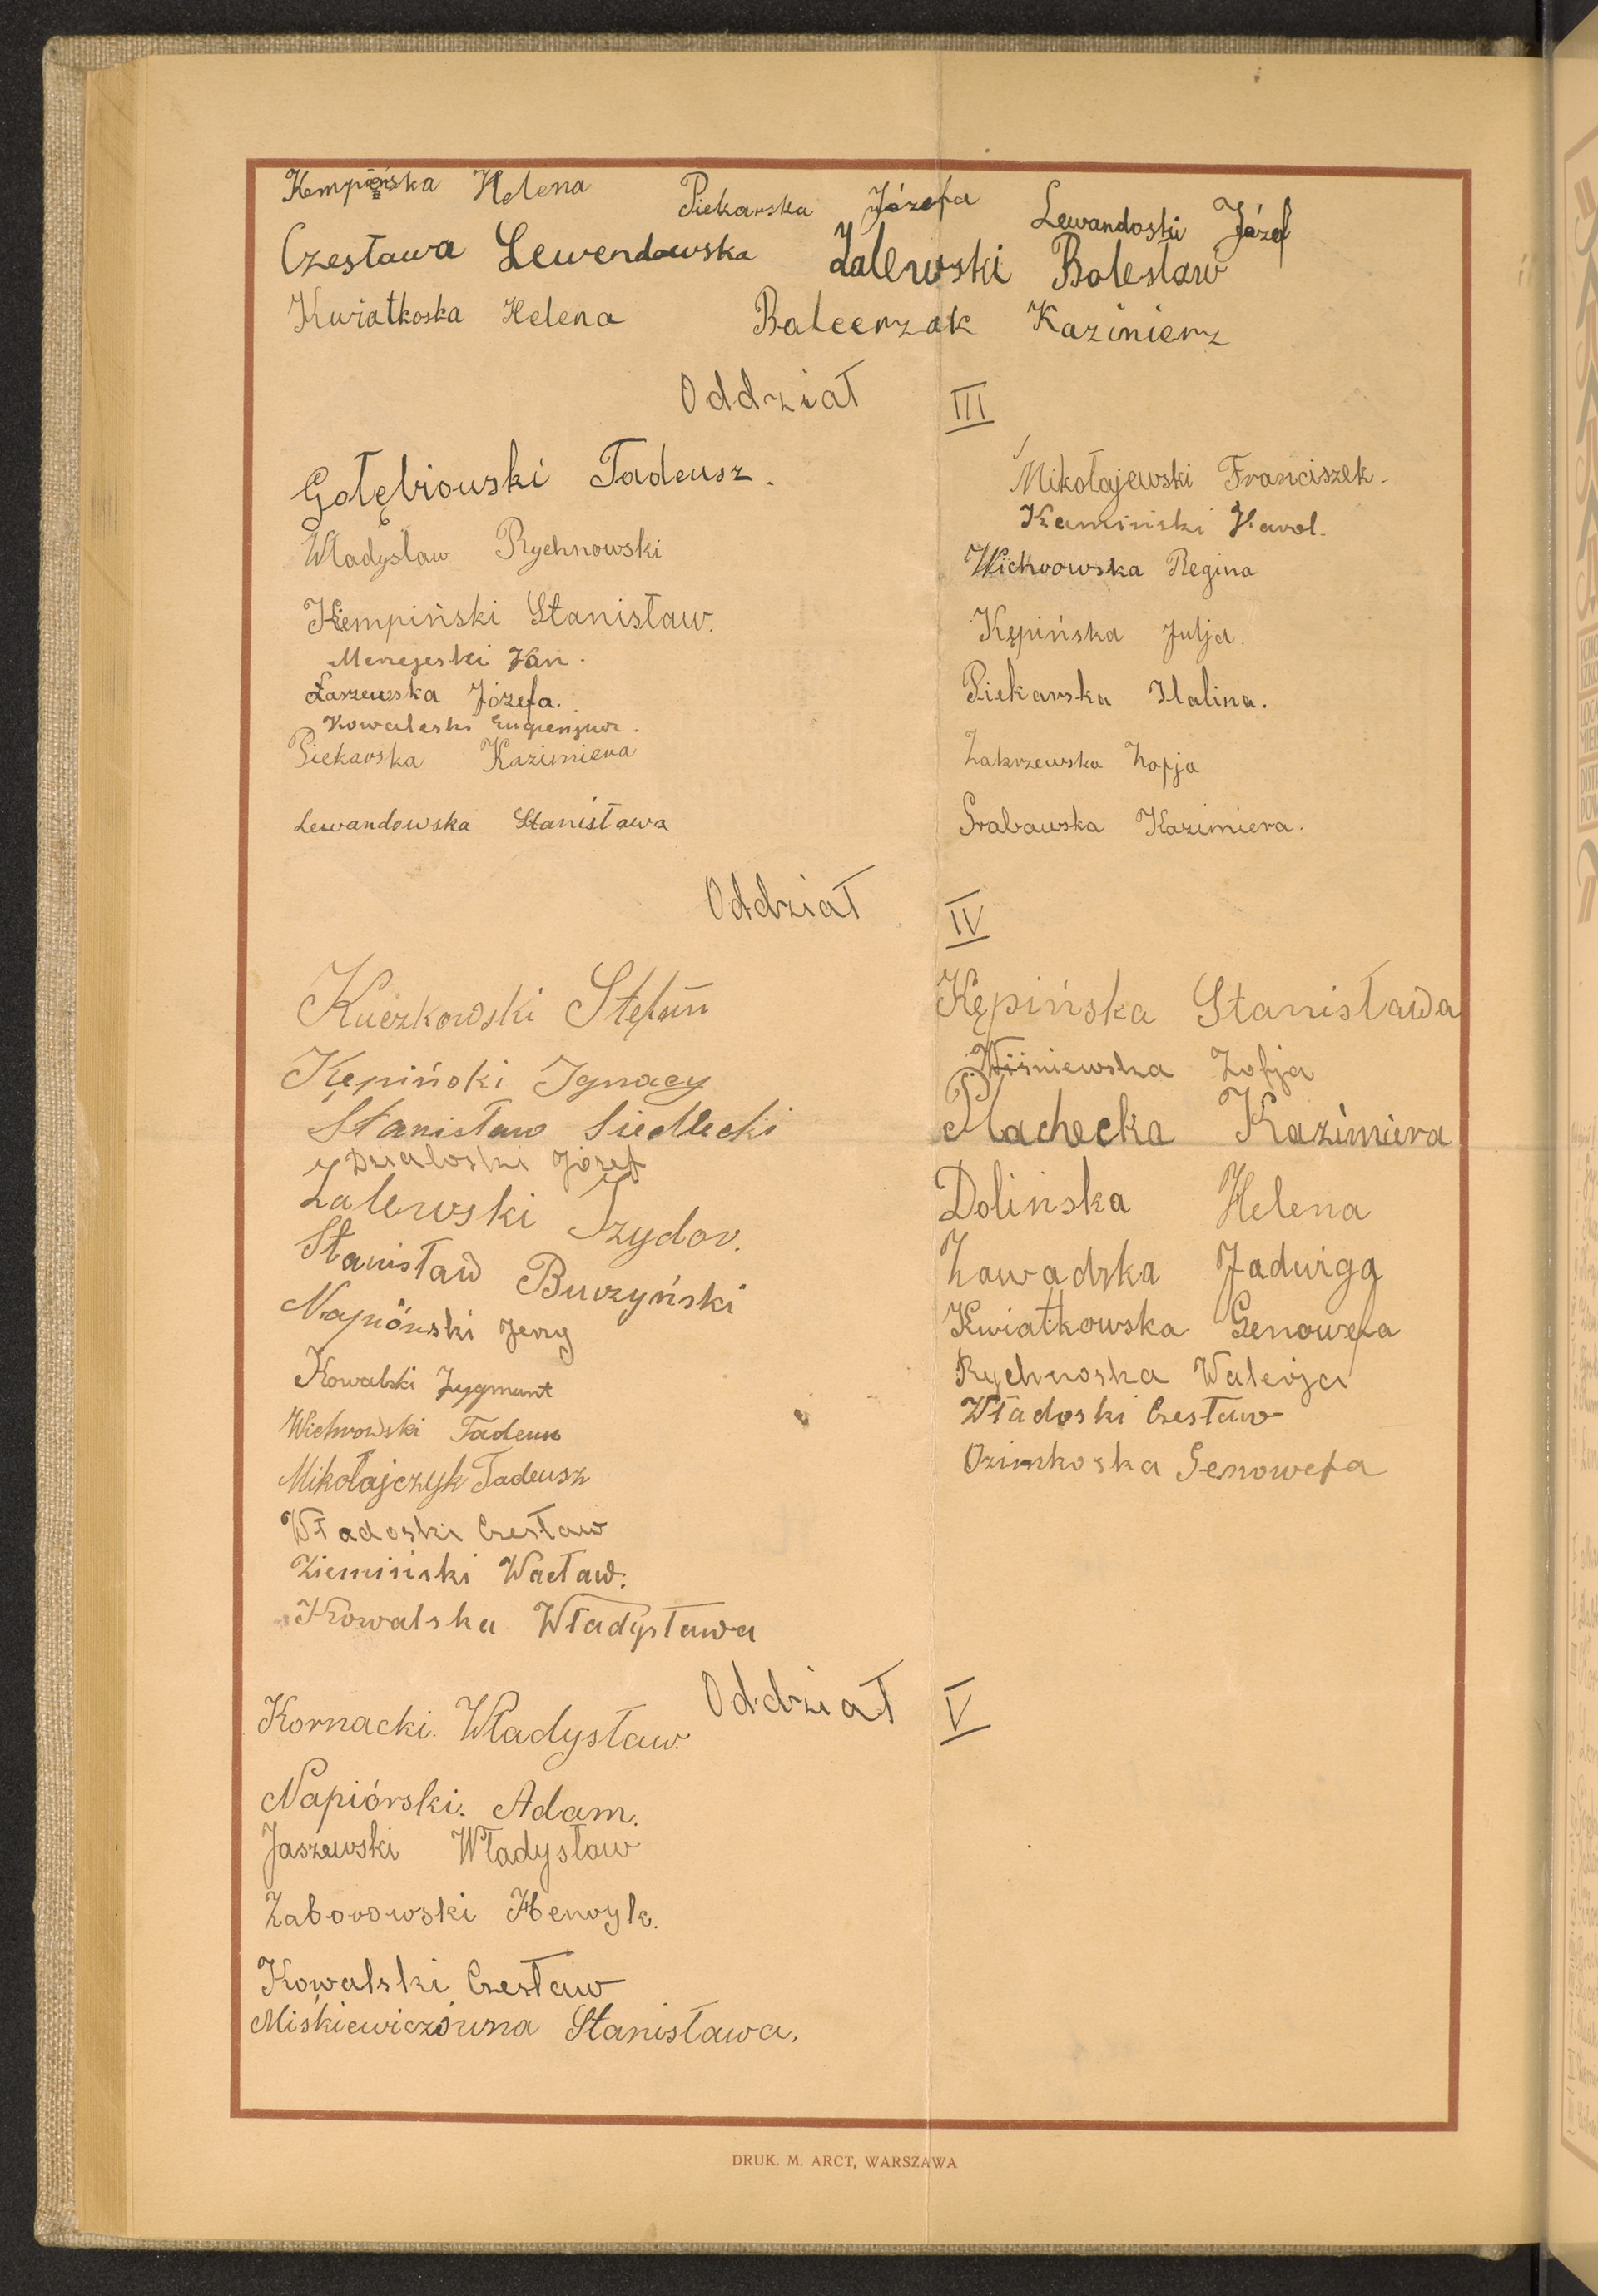 Kempińska Helena Piekarska Józefa Lewandoski Józef
Czesława Lewendowska Zalewski Bolesław
Kwiatkoska Helena Balcerzak Kazimierz
Oddział III
Gołębiowski Tadeusz.
Władysław Rychnowski
Kempiński Stanisław.
Merzejeski Jan.
Łaszewska Józefa.
Kowaleski Eugienjusz.
Piekarska Kazimiera
Lewandowska Stanisława
Mikołajewski Franciszek.
Kamiński Karol.
Wichrowska Regina
Kępińska Julja.
Piekarska Halina.
Zakrzewska Zofja
Grabowska Kazimiera.
Oddział IV
Kuczkowski Stefan
Kępiński Ignacy
Stanisław Siedlecki
Działoski Józef
Zalewski Izydor.
Stanisław Burzyński
Napiórski Jerzy
Kowalski Zygmunt
Wichrowski Tadeusz
Mikołajczyk Tadeusz
Władoski Czesław
Ziemiński Wacław.
Kowalska Władysława
Kępińska Stanisława
Wiśniewska Zofja
Płachecka Kazimiera
Dolińska Helena
Zawadzka Jadwiga
Kwiatkowska Genowefa
Rychnoska Walerja
Władoski Czesław
Ozimkoska Genowefa
Oddział V
Kornacki. Władysław.
Napiórski. Adam.
Jaszewski Władysław
Zaborowski Henryk.
Kowalski Czesław
Miśkiewiczówna Stanisława.
DRUK. M. ARCT, WARSZAWA